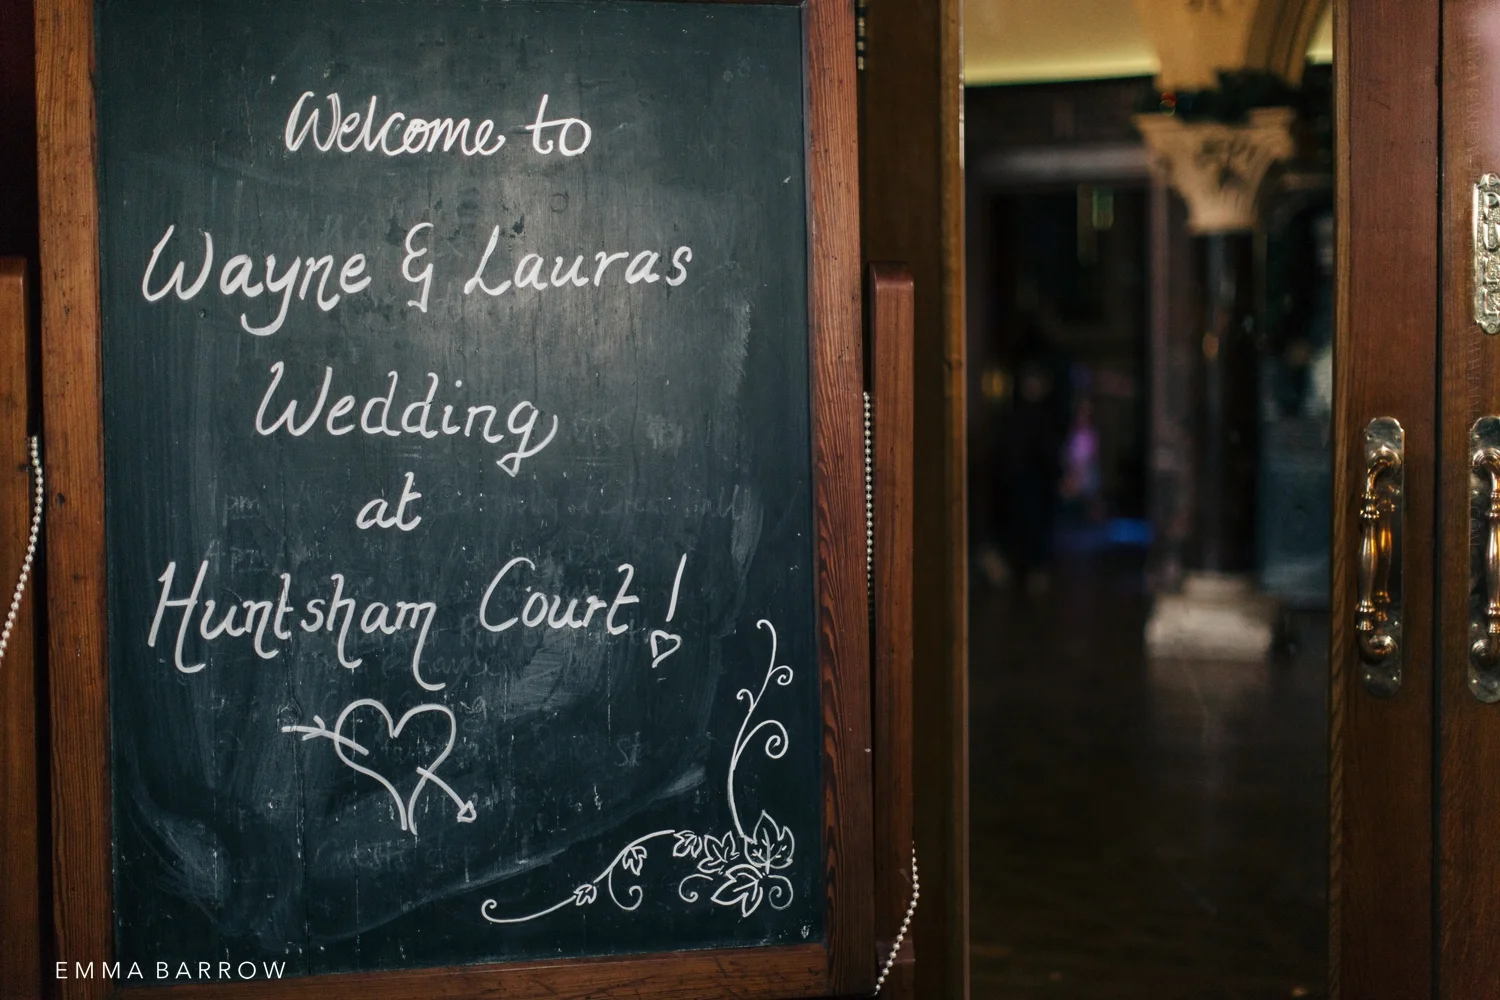 Welcome to
Wayne & Lauras
Wedding
at
Huntsham Court!
EMMA BARROW